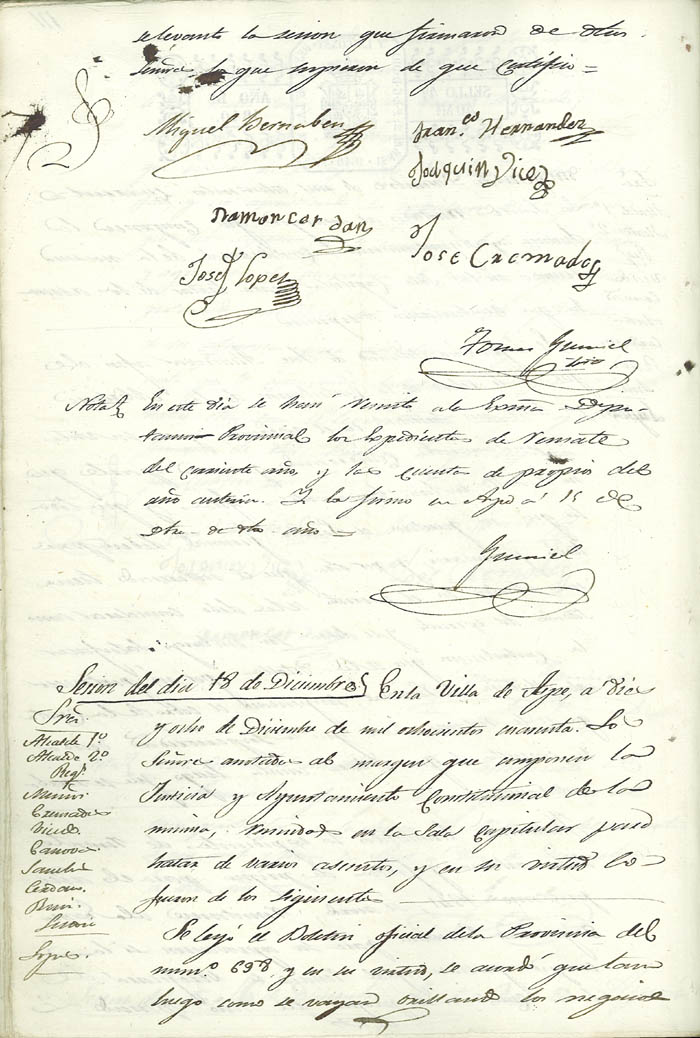 se levantó la sesion que firmaron de dhos
Señores los que supieron de que Certifico =
Miguel Bernabeu
Fran.co Hernandez
Joaquin Vicedo
Ramon Cerdan
Jose Cremades
Josef Lopez
Tomas Gumiel
Srio
Nota En este dia se han remitido a la Exma Dipu-
tacion Provincial los Expedientes de Remate
del corriente año, y las cuentas de propios del
año anterior. Y lo firmo en Aspe á 15 de
Dbre de dho año =
Gumiel
Sesion del dia 18 de Diciembre En la Villa de Aspe, a diez
y ocho de Diciembre de mil ochocientos cuarenta. Los
Señores anotados al margen que componen la
Justicia y Ayuntamiento Constitucional de la
misma, reunidos en la Sala Capitular para
tratar de varios asuntos, y en su virtud lo
fueron de los siguientes
Se leyó el Boletin oficial de la Provincia del
num.o 698 y en su virtud, se acordó que tan
luego como se vayan los negocios
Sres.
Alcalde 1.o
Alcalde 2.o
Reg.s
Cremades
Vicedo
Canova
Sanchez
Cerdan
Lopez